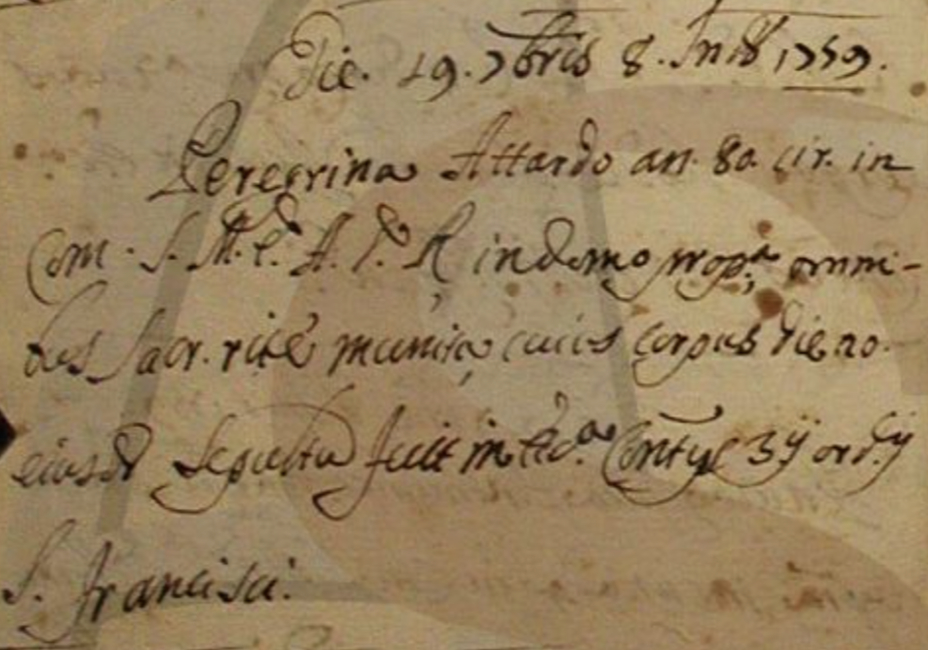 Die. 19. 7bris 8. Ind. 1759.
Peregrina Attardo an. 80. cir. in
Com. S. M. E. A. D. R in domo prop.a omni-
bus Sacr. rité munita cuius corpus die 20.
eiusd Sepultu fuit in Ecc.a Contus 3ij ord.ij
S. Francisci.